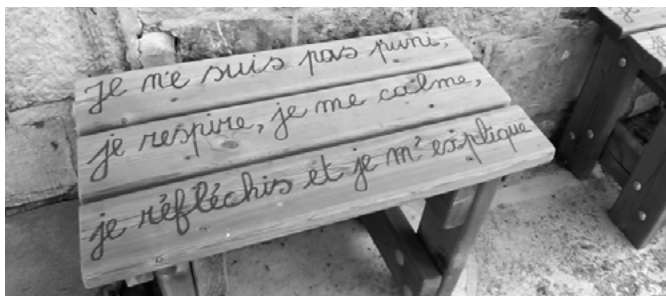 je ne suis pas puni,
je respire, je me calme,
je réfléchis et je m'explique